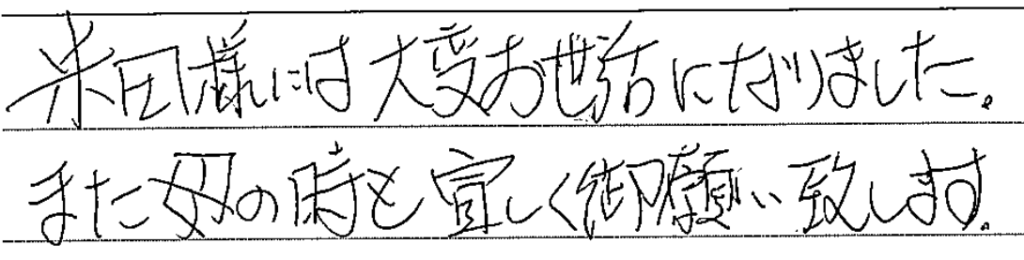 米田様には大変お世話になりました。
またの時も宜しく御願い致します。